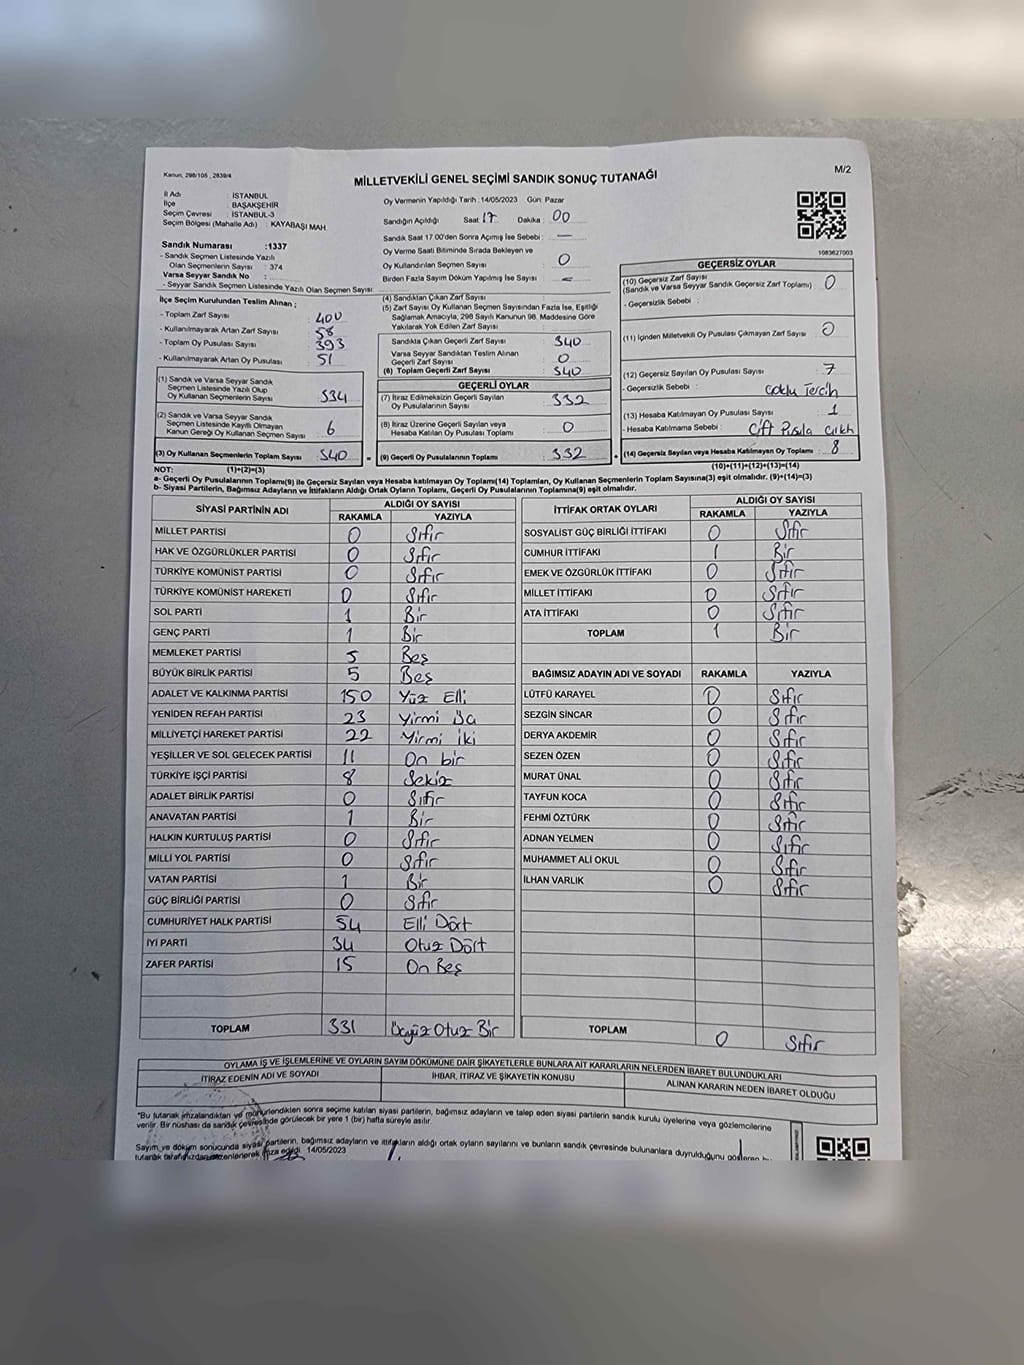 Kanun, 298/105 , 2839/4
MİLLETVEKİLİ GENEL SEÇİMİ SANDIK SONUÇ TUTANAĞI
M/2
İl Adı : İSTANBUL
İlçe : BAŞAKŞEHİR
Seçim Çevresi : İSTANBUL-3
Seçim Bölgesi (Mahalle Adı) : KAYABAŞI MAH.
Sandık Numarası :1337
- Sandık Seçmen Listesinde Yazılı
Olan Seçmenlerin Sayısı : 374
Varsa Seyyar Sandık No :
- Seyyar Sandık Seçmen Listesinde Yazılı Olan Seçmen Sayısı :
Oy Vermenin Yapıldığı Tarih :14/05/2023 Gün: Pazar
Sandığın Açıldığı Saat : 17 Dakika : 00
Sandık Saat 17.00'den Sonra Açılmış İse Sebebi : —
Oy Verme Saati Bitiminde Sırada Bekleyen ve
Oy Kullandırılan Seçmen Sayısı : 0
Birden Fazla Sayım Döküm Yapılmış İse Sayısı : —
1083627003
İlçe Seçim Kurulundan Teslim Alınan ;
- Toplam Zarf Sayısı : 400
- Kullanılmayarak Artan Zarf Sayısı : 58
- Toplam Oy Pusulası Sayısı : 393
- Kullanılmayarak Artan Oy Pusulası : 51
(1) Sandık ve Varsa Seyyar Sandık
Seçmen Listesinde Yazılı Olup
Oy Kullanan Seçmenlerin Sayısı : 334
(2) Sandık ve Varsa Seyyar Sandık
Seçmen Listesinde Kayıtlı Olmayan
Kanun Gereği Oy Kullanan Seçmen Sayısı : 6
(3) Oy Kullanan Seçmenlerin Toplam Sayısı : 340
(4) Sandıktan Çıkan Zarf Sayısı :
(5) Zarf Sayısı Oy Kullanan Seçmen Sayısından Fazla İse, Eşitliği
Sağlamak Amacıyla, 298 Sayılı Kanunun 98. Maddesine Göre
Yakılarak Yok Edilen Zarf Sayısı :
Sandıkla Çıkan Geçerli Zarf Sayısı : 340
Varsa Seyyar Sandıktan Teslim Alınan
Geçerli Zarf Sayısı : 0
(6) Toplam Geçerli Zarf Sayısı : 340
GEÇERLİ OYLAR
(7) İtiraz Edilmeksizin Geçerli Sayılan
Oy Pusulalarının Sayısı : 332
(8) İtiraz Üzerine Geçerli Sayılan veya
Hesaba Katılan Oy Pusulası Toplamı : 0
= (9) Geçerli Oy Pusulalarının Toplamı : 332
GEÇERSİZ OYLAR
(10) Geçersiz Zarf Sayısı
(Sandık ve Varsa Seyyar Sandık Geçersiz Zarf Toplamı) : 0
- Geçersizlik Sebebi :
(11) İçinden Milletvekili Oy Pusulası Çıkmayan Zarf Sayısı : 0
(12) Geçersiz Sayılan Oy Pusulası Sayısı : 7
- Geçersizlik Sebebi : Çoklu Tercih
(13) Hesaba Katılmayan Oy Pusulası Sayısı : 1
- Hesaba Katılmama Sebebi : Çift Pusula Çıktı
+ (14) Geçersiz Sayılan veya Hesaba Katılmayan Oy Toplamı : 8
NOT: (1)+(2)=(3) (10)+(11)+(12)+(13)=(14)
a- Geçerli Oy Pusulalarının Toplamı(9) ile Geçersiz Sayılan veya Hesaba katılmayan Oy Toplamı(14) Toplamları, Oy Kullanan Seçmenlerin Toplam Sayısına(3) eşit olmalıdır. (9)+(14)=(3)
b- Siyasi Partilerin, Bağımsız Adayların ve İttifakların Aldığı Ortak Oyların Toplamı, Geçerli Oy Pusulalarının Toplamına(9) eşit olmalıdır.
SİYASİ PARTİNİN ADI ALDIĞI OY SAYISI
RAKAMLA YAZIYLA
MİLLET PARTİSİ 0 Sıfır
HAK VE ÖZGÜRLÜKLER PARTİSİ 0 Sıfır
TÜRKİYE KOMÜNİST PARTİSİ 0 Sıfır
TÜRKİYE KOMÜNİST HAREKETİ 0 Sıfır
SOL PARTİ 1 Bir
GENÇ PARTİ 1 Bir
MEMLEKET PARTİSİ 5 Beş
BÜYÜK BİRLİK PARTİSİ 5 Beş
ADALET VE KALKINMA PARTİSİ 150 Yüz Elli
YENİDEN REFAH PARTİSİ 23 Yirmi Üç
MİLLİYETÇİ HAREKET PARTİSİ 22 Yirmi iki
YEŞİLLER VE SOL GELECEK PARTİSİ 11 On bir
TÜRKİYE İŞÇİ PARTİSİ 8 Sekiz
ADALET BİRLİK PARTİSİ 0 Sıfır
ANAVATAN PARTİSİ 1 Bir
HALKIN KURTULUŞ PARTİSİ 0 Sıfır
MİLLİ YOL PARTİSİ 0 Sıfır
VATAN PARTİSİ 1 Bir
GÜÇ BİRLİĞİ PARTİSİ 0 Sıfır
CUMHURİYET HALK PARTİSİ 54 Elli Dört
İYİ PARTİ 34 Otuz Dört
ZAFER PARTİSİ 15 On Beş
TOPLAM 331 Üçyüz Otuz Bir
İTTİFAK ORTAK OYLARI ALDIĞI OY SAYISI
RAKAMLA YAZIYLA
SOSYALİST GÜÇ BİRLİĞİ İTTİFAKI 0 Sıfır
CUMHUR İTTİFAKI 1 Bir
EMEK VE ÖZGÜRLÜK İTTİFAKI 0 Sıfır
MİLLET İTTİFAKI 0 Sıfır
ATA İTTİFAKI 0 Sıfır
TOPLAM 1 Bir
BAĞIMSIZ ADAYIN ADI VE SOYADI RAKAMLA YAZIYLA
LÜTFÜ KARAYEL 0 Sıfır
SEZGİN SİNCAR 0 Sıfır
DERYA AKDEMİR 0 Sıfır
SEZEN ÖZEN 0 Sıfır
MURAT ÜNAL 0 Sıfır
TAYFUN KOCA 0 Sıfır
FEHMİ ÖZTÜRK 0 Sıfır
ADNAN YELMEN 0 Sıfır
MUHAMMET ALİ OKUL 0 Sıfır
İLHAN VARLIK 0 Sıfır
TOPLAM 0 Sıfır
OYLAMA İŞ VE İŞLEMLERİNE VE OYLARIN SAYIM DÖKÜMÜNE DAİR ŞİKAYETLERLE BUNLARA AİT KARARLARIN NELERDEN İBARET BULUNDUKLARI
İTİRAZ EDENİN ADI VE SOYADI İHBAR, İTİRAZ VE ŞİKAYETİN KONUSU ALINAN KARARIN NEDEN İBARET OLDUĞU
*Bu tutanak imzalandıktan ve mühürlendikten sonra seçime katılan siyasi partilerin, bağımsız adayların ve talep eden siyasi partilerin sandık kurulu üyelerine veya gözlemcilerine
verilir. Bir nüshası da sandık çevresinde görülecek bir yere 1 (bir) hafta süreyle asılır.
Sayım ve döküm sonucunda siyasi partilerin, bağımsız adayların ve ittifakların aldığı ortak oyların sayılarını ve bunların sandık çevresinde bulunanlara duyrulduğunu gösteren bu
tutanak tarafımızdan düzenlenerek imza edildi. 14/05/2023